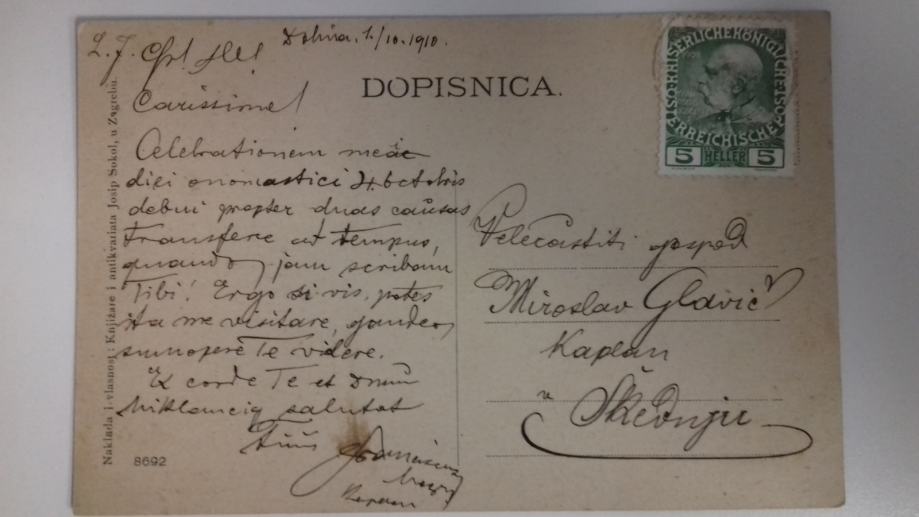 L. J. Chr!
Dolina, 1./10. 1910.
DOPISNICA.
Carissime!
Celebrationem meae
diei onomastici 4. octobris
debui propter duas causas
transfere ad tempus,
quando jam scribam
Tibi! Ergo si vis, potes
ita me visitare, gaudeo,
summopere Te videre.
Ex corde Te et Dnum
salutat
Tuus
Franciscus
Velečastiti gospod
Miroslav Glavič
Kaplan
v
Škednju
KAISERLICHE KÖNIGLICHE ÖSTERREICHISCHE POST
1908
5 HELLER 5
Naklada i vlasnost: Knjižare i antikvariata Josip Sokol, u Zagrebu.
8692